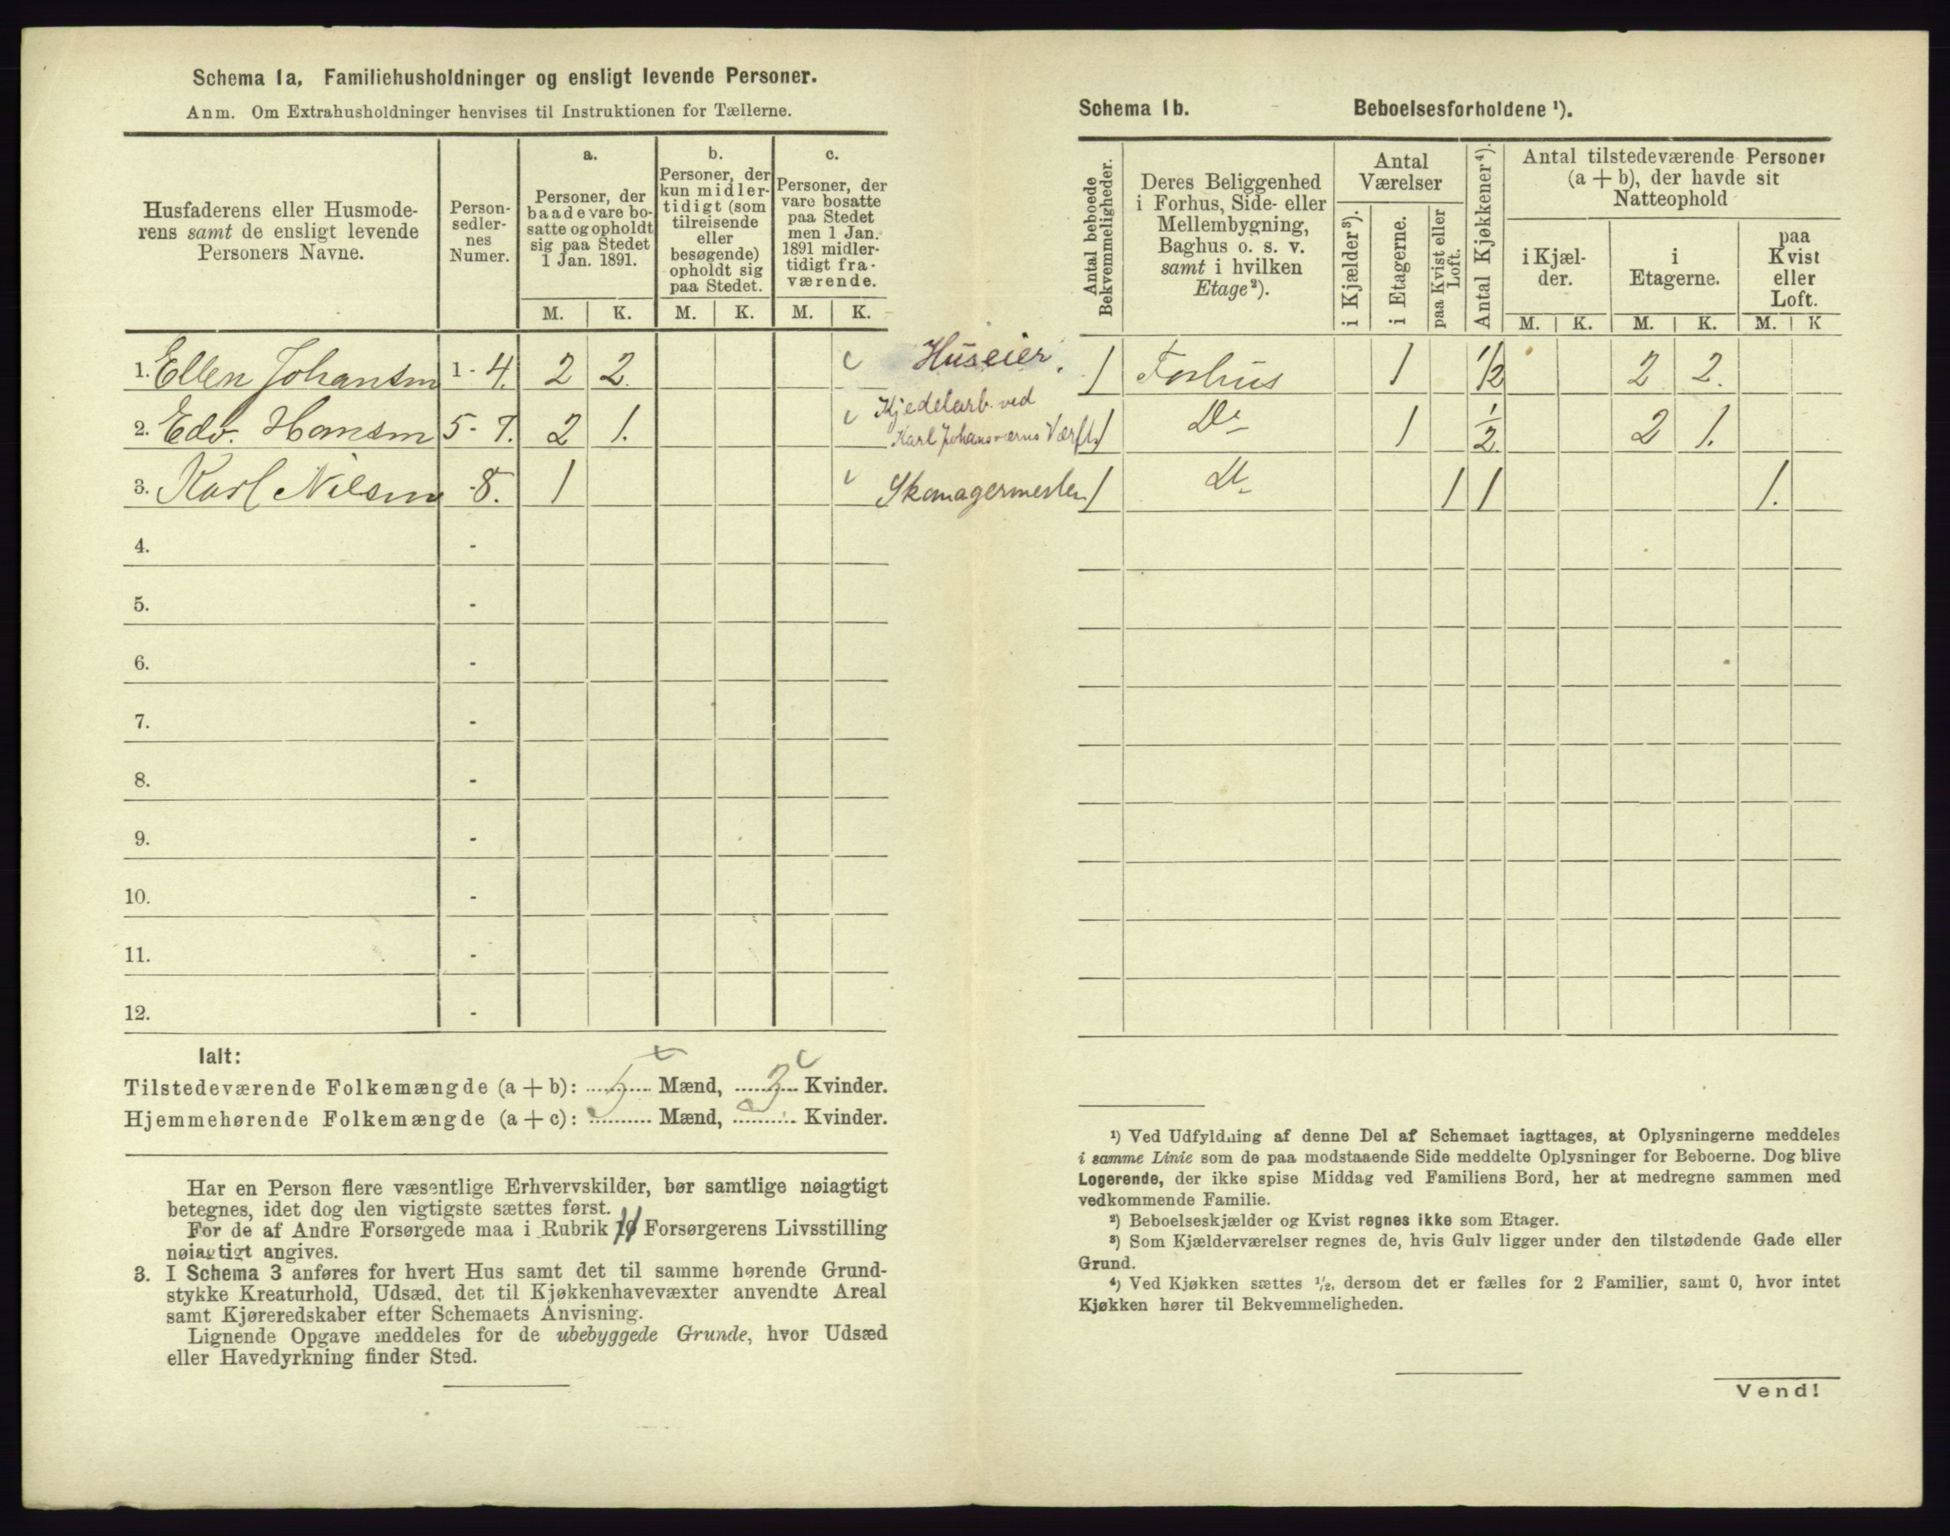 Schema 1a, Familiehusholdninger og ensligt levende Personer.
Anm. Om Extrahusholdninger henvises til Instruktionen for Tællerne.
Husfaderens eller Husmode-
rens samt de ensligt levende
Personers Navne.
Person-
sedler-
nes
Numer.
a.
Personer, der
baade vare bo-
satte og opholdt
sig paa Stedet
1 Jan. 1891.
b.
Personer, der
kun midler-
tidigt (som
tilreisende
eller
besøgende)
opholdt sig
paa Stedet.
c.
Personer, der
vare bosatte
paa Stedet
men 1 Jan.
1891 midler-
tidigt fra-
værende.
M. K. M. K. M. K.
1. Ellen Johansen 1 - 4. 2 2. Huseier.
2. Edv. Hansen 5 - 7. 2 1. Kjedelarb. ved
Karl Johansværns Værft.
3. Karl Nilsen - 8. 1 Skomagermester
4. -
5. -
6. -
7. -
8. -
9. -
10. -
11. -
12. -
Ialt:
Tilstedeværende Folkemængde (a + b): 5 Mænd, 3 Kvinder.
Hjemmehørende Folkemængde (a + c): Mænd, Kvinder.
Har en Person flere væsentlige Erhvervskilder, bør samtlige nøiagtigt
betegnes, idet dog den vigtigste sættes først.
For de af Andre Forsørgede maa i Rubrik Forsørgerens Livsstilling
nøiagtigt angives.
3. I Schema 3 anføres for hvert Hus samt det til samme hørende Grund-
stykke Kreaturhold, Udsæd, det til Kjøkkenhavevæxter anvendte Areal
samt Kjøreredskaber efter Schemaets Anvisning.
Lignende Opgave meddeles for de ubebyggede Grunde, hvor Udsæd
eller Havedyrkning finder Sted.
Schema 1b. Beboelsesforholdene ¹).
Antal beboede
Bekvemmeligheder.
Deres Beliggenhed
i Forhus, Side- eller
Mellembygning,
Baghus o. s. v.
samt i hvilken
Etage²).
Antal
Værelser
i Kjælder³).
i Etagerne.
paa Kvist eller
Loft.
Antal Kjøkkener⁴).
Antal tilstedeværende Personer
(a + b), der havde sit
Natteophold
i Kjæl-
der.
i
Etagerne.
paa
Kvist
eller
Loft.
M. K. M. K. M. K
1 Forhus 1 1/2 2 2.
1 Do 1 1/2 2 1.
1 Do 1 1 1.
¹) Ved Udfyldning af denne Del af Schemaet iagttages, at Oplysningerne meddeles
i samme Linie som de paa modstaaende Side meddelte Oplysninger for Beboerne. Dog blive
Logerende, der ikke spise Middag ved Familiens Bord, her at medregne sammen med
vedkommende Familie.
²) Beboelseskjælder og Kvist regnes ikke som Etager.
³) Som Kjælderværelser regnes de, hvis Gulv ligger under den tilstødende Gade eller
Grund.
⁴) Ved Kjøkken sættes ¹/₂, dersom det er fælles for 2 Familier, samt 0, hvor intet
Kjøkken hører til Bekvemmeligheden.
Vend!